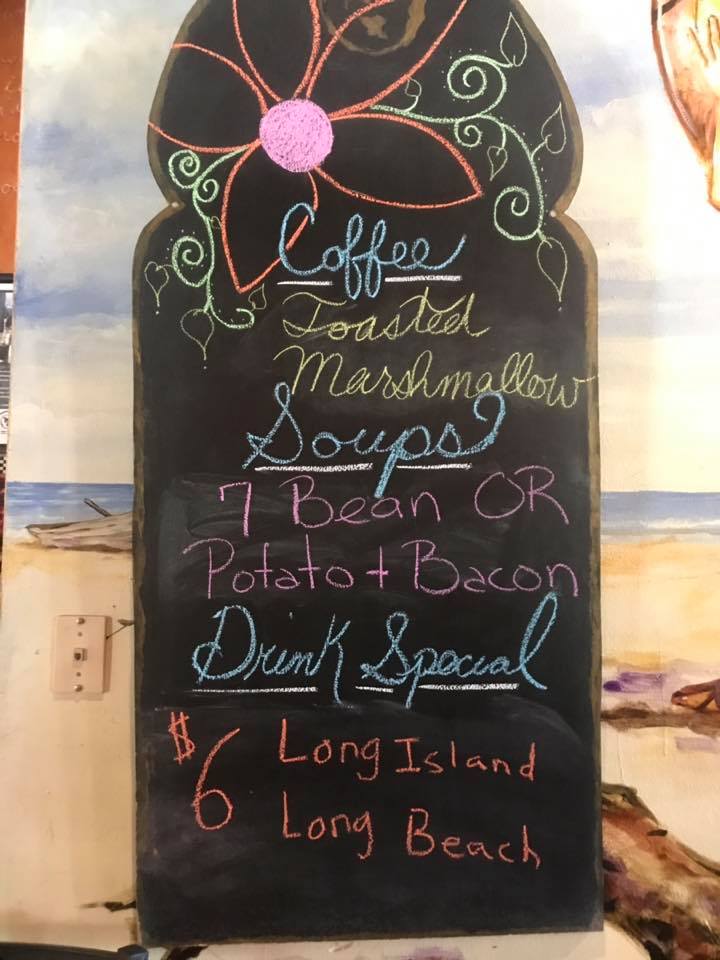 Coffee
Toasted
Marshmallow
Soups
7 Bean OR
Potato + Bacon
Drink Special
$6 Long Island
Long Beach